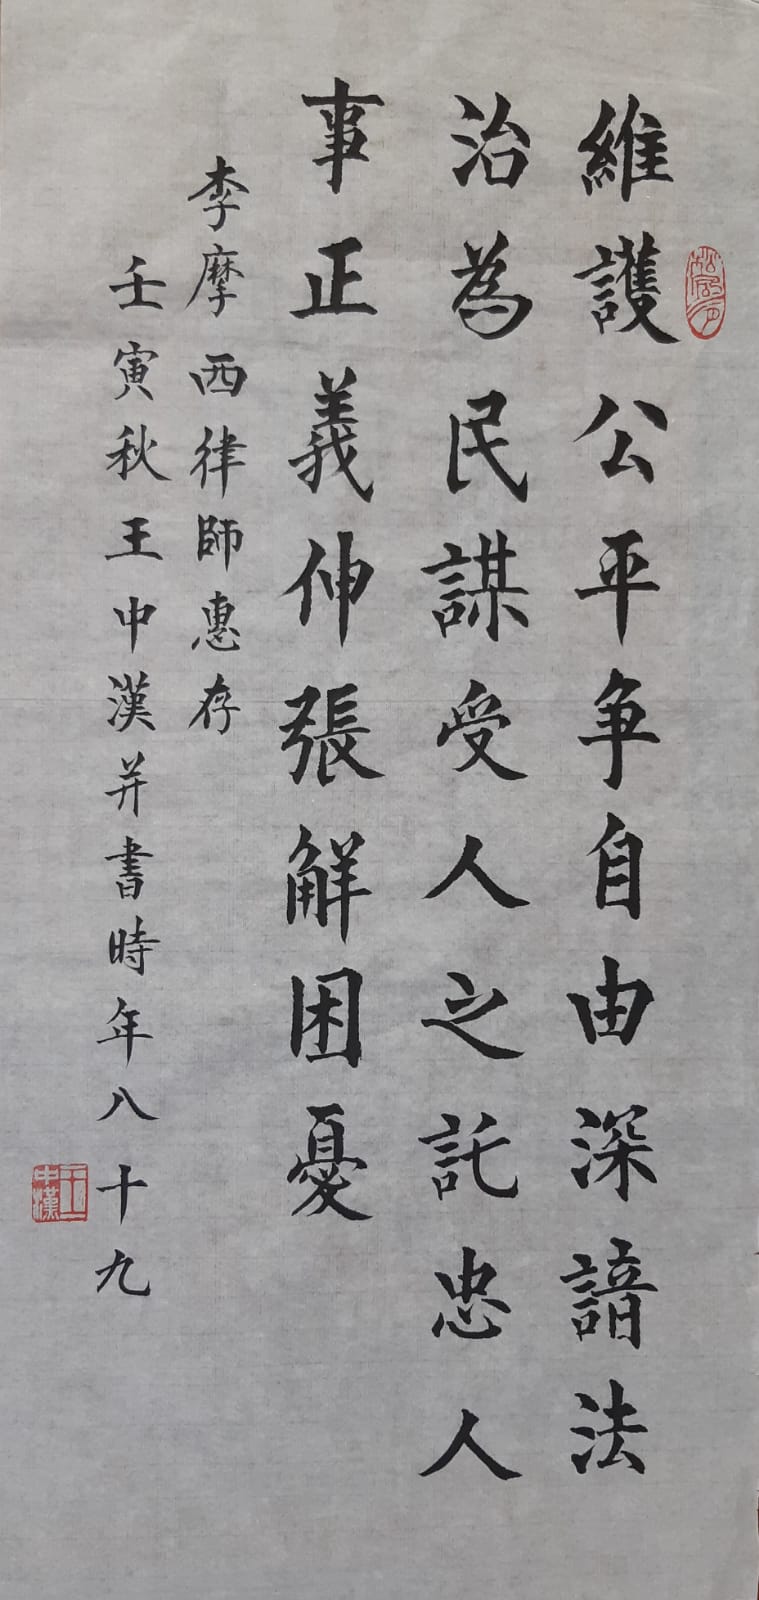 維護公平争自由深諳法
治為民謀受人之託忠人
事正義伸張解困憂
李摩西律師惠存
壬寅秋王中漢并書時年八十九
王中漢